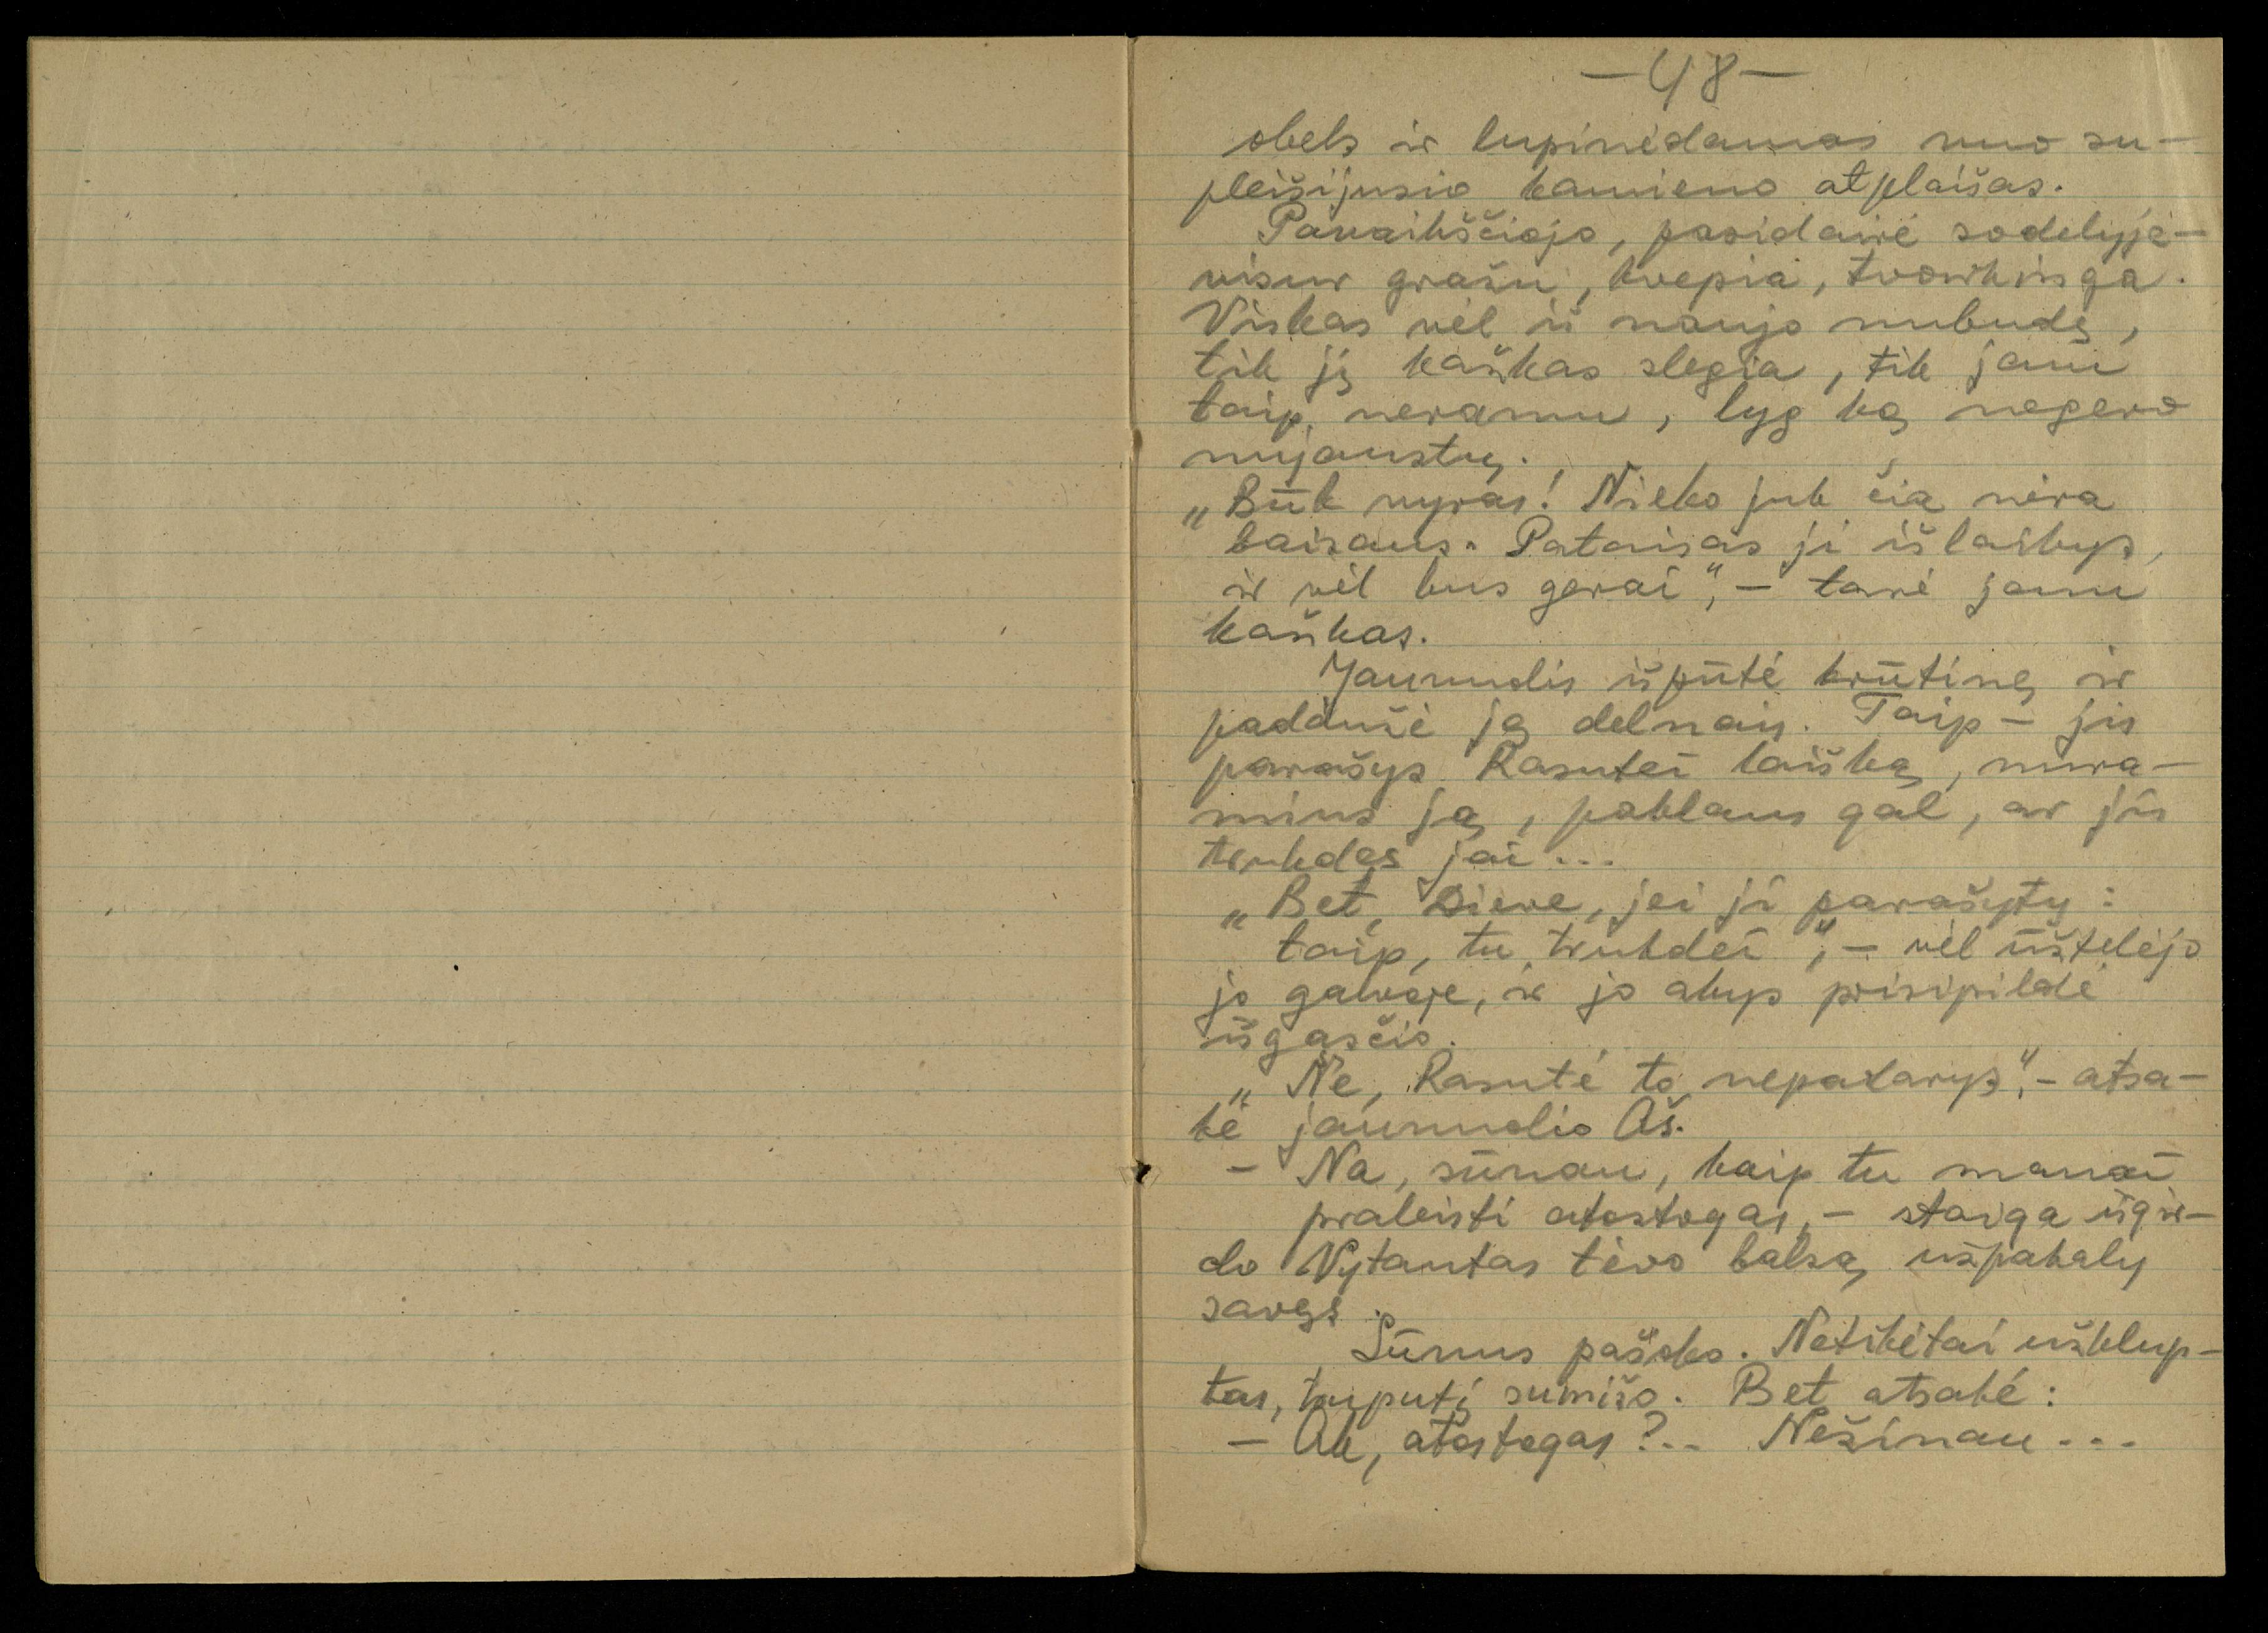 —48—
obels ir lupinėdamas nuo su-
pleišijusio kamieno atplaišas.
Pavaikščiojo, pasidairė sodelyje—
visur gražu, kvepia, tvarkinga.
Viskas vėl iš naujo nubudę,
tik jį kažkas slegia, tik jam
taip neramu, lyg ką negero
nujaustų.
„Būk vyras! Nieko juk čia nėra
baisaus. Pataisas ji išlaikys,
ir vėl bus gerai“, — tarė jam
kažkas.
Jaunuolis išpūtė krūtinę ir
paddužė ją delnais. Taip — jis
parašys Rasutei laišką, nura-
mins ją, paklaus gal, ar jis
trukdęs jai...
„Bet, Dieve, jei ji parašytų:
taip, tu trukdei“, — vėl ūžtelėjo
jo galvoje, ir jo akys prisipildė
išgąsčio.
„Ne, Rasutė to nepadarys“, — atsa-
kė jaunuolio Aš.
— Na, sūnau, kaip tu manai
praleisti atostogas, — staiga išgir-
do Vytautas tėvo balsą užpakaly
savęs.
Sūnus pašoko. Netikėtai užklup-
tas, truputį sumišo. Bet atsakė:
— Ak, atostogas?.. Nežinau...